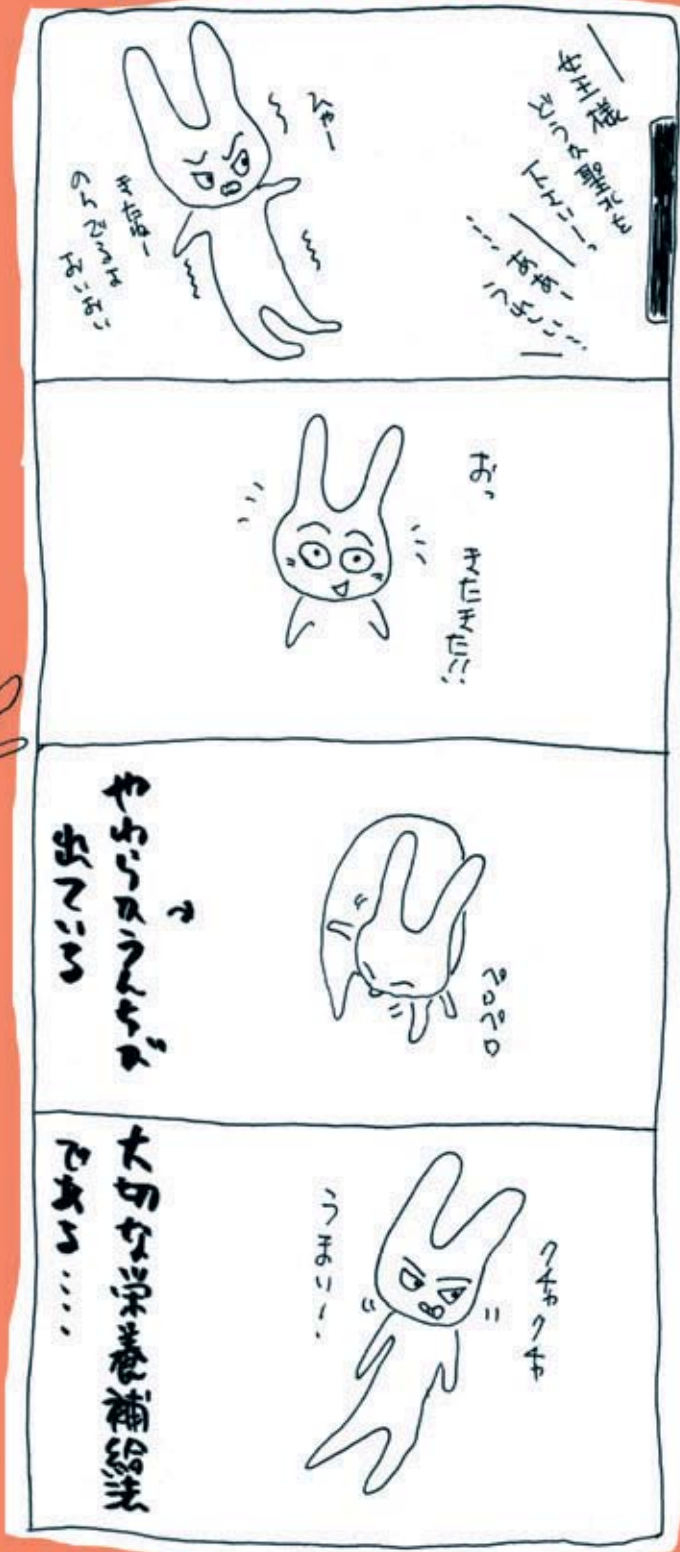 女王様
どうか聖水を
下さいーっ
……ああー
ひゃー
きたねー
のんでるよ
おいおい
おっ
きたきた!!
ペロペロ
やわらかうんちが
出ている
クチャクチャ
うまいー、
大切な栄養補給法
である……